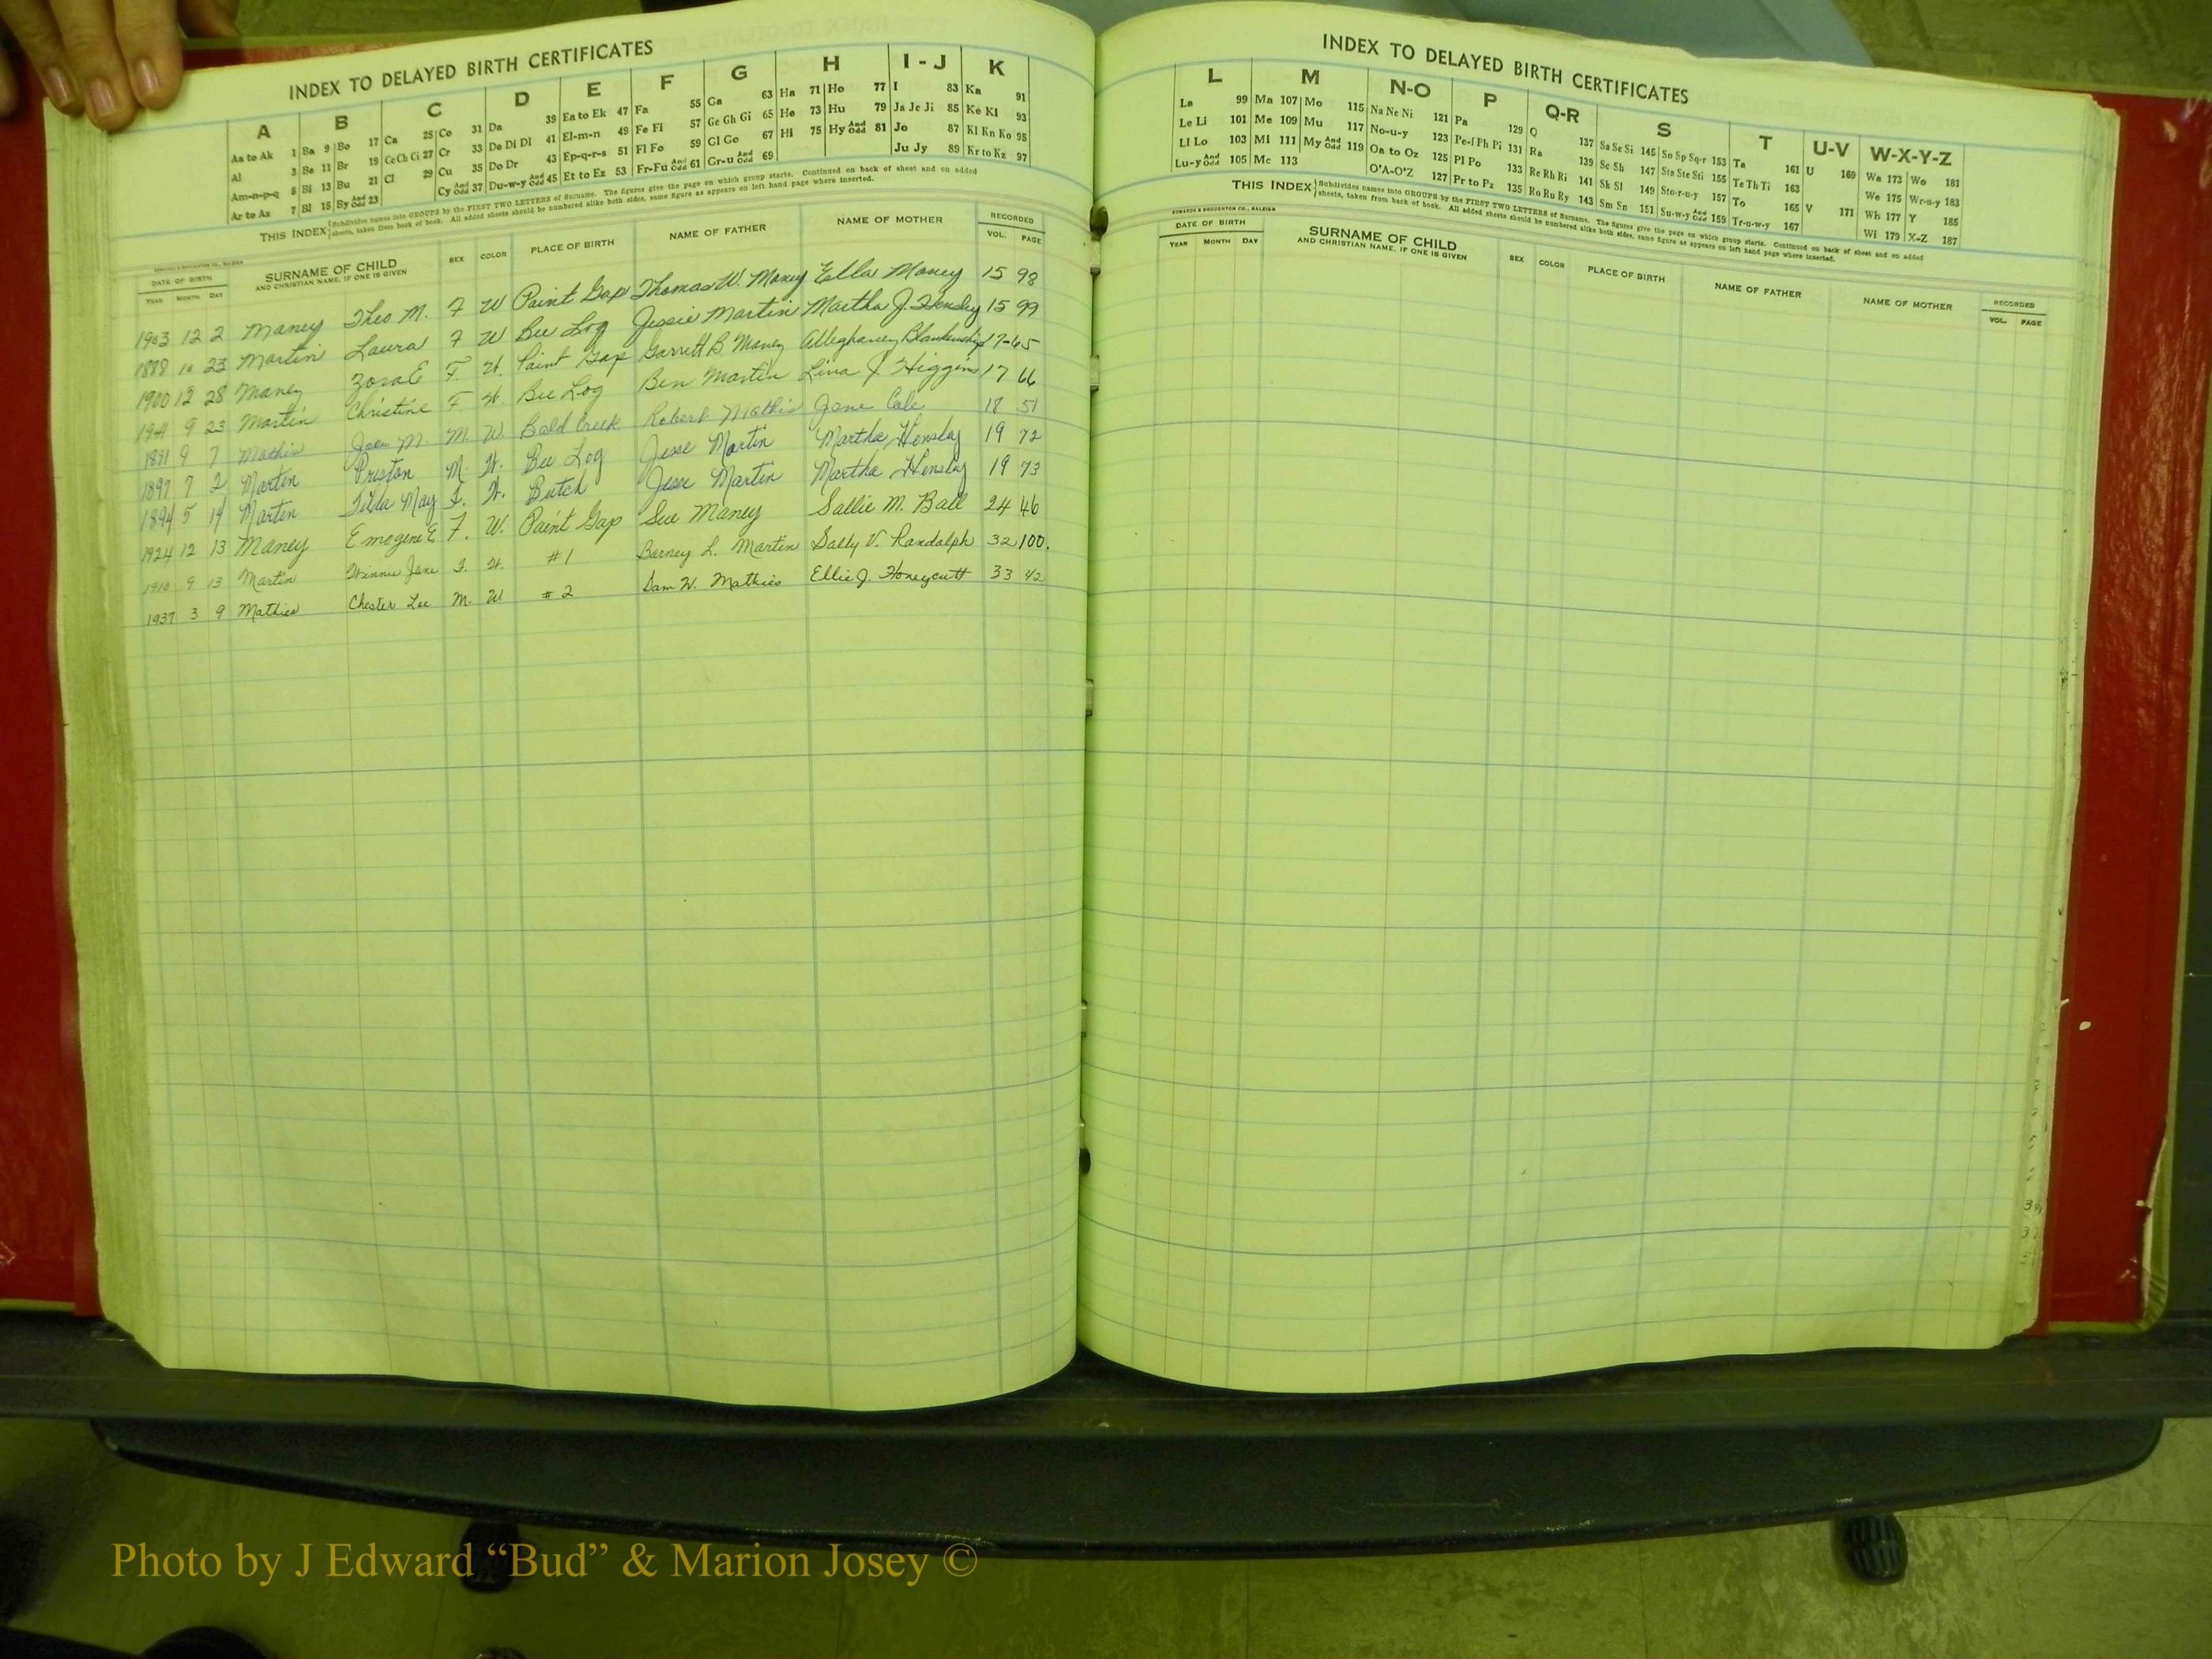 INDEX TO DELAYED BIRTH CERTIFICATES
A B C D E F G H I - J K
Aa to Ak 1 Ba 9 Bo 17 Ca 25 Co 31 Da 39 Ea to Ek 47 Fa 55 Ga 63 Ha 71 Ho 77 I 83 Ka 91
Al 3 Be 11 Br 19 Ce Ch Ci 27 Cr 33 De Di Dl 41 El-m-n 49 Fe Fi 57 Ge Gh Gi 65 He 73 Hu 79 Ja Je Ji 85 Ke Kl 93
Am-n-p-q 5 Bi 13 Bu 21 Cl 29 Cu 35 Do Dr 43 Ep-q-r-s 51 Fl Fo 59 Gl Go 67 Hi 75 Hy And Odd 81 Jo 87 Kl Kn Ko 95
Ar to Az 7 Bl 15 By And Odd 23 Cy And Odd 37 Du-w-y And Odd 45 Et to Ez 53 Fr-Fu And Odd 61 Gr-u And Odd 69 Ju Jy 89 Kr to Kz 97
THIS INDEX Subdivides names into GROUPS by the FIRST TWO LETTERS of Surname. The figures give the page on which group starts. Continued on back of sheet and on added
sheets, taken from back of book. All added sheets should be numbered alike both sides, same figure as appears on left hand page where inserted.
EDWARDS & BROUGHTON CO., RALEIGH
DATE OF BIRTH SURNAME OF CHILD SEX COLOR PLACE OF BIRTH NAME OF FATHER NAME OF MOTHER RECORDED
YEAR MONTH DAY AND CHRISTIAN NAME, IF ONE IS GIVEN VOL. PAGE
1903 12 2 Maney Theo M. F W Paint Gap Thomas W. Maney Ella Maney 15 98
1888 10 23 Martin Laura F W Bee Log Jessie Martin Martha J. Hensley 15 99
1900 12 28 Maney Zora E F. W. Paint Gap Garrett B Maney Alleghaney Blankenship 17-65
1941 9 23 Martin Christine F. W. Bee Log Ben Martin Lina J. Higgins 17 66
1891 9 7 Mathis M. M. W. Bald Creek Robert Mathis Jane Cole 18 51
1897 7 2 Martin Preston M. W. Bee Log Jesse Martin Martha Hensley 19 72
1894 5 14 Martin Tilda May F. W. Butch Jesse Martin Martha Hensley 19 73
1924 12 13 Maney Emogene E F. W. Paint Gap Sue Maney Sallie M. Ball 24 46
1910 9 13 Martin Winnie Jane F. W. #1 Barney L. Martin Sally V. Randolph 32 100.
1937 3 9 Mathies Chester Lee M. W #2 Sam W. Mathies Ellie J. Honeycutt 33 42
INDEX TO DELAYED BIRTH CERTIFICATES
L M N-O P Q-R S T U-V W-X-Y-Z
La 99 Ma 107 Mo 115 Na Ne Ni 121 Pa 129 Q 137 Sa Se Si 145 So Sp Sq-r 153 Ta 161 U 169 Wa 173 Wo 181
Le Li 101 Me 109 Mu 117 No-u-y 123 Pe-f Ph Pi 131 Ra 139 Sc Sh 147 Sta Ste Sti 155 Te Th Ti 163 We 175 Wr-u-y 183
Ll Lo 103 Mi 111 My And Odd 119 Oa to Oz 125 Pl Po 133 Re Rh Ri 141 Sk Sl 149 Sto-r-u-y 157 To 165 V 171 Wh 177 Y 185
Lu-y And Odd 105 Mc 113 O'A-O'Z 127 Pr to Pz 135 Ro Ru Ry 143 Sm Sn 151 Su-w-y And Odd 159 Tr-u-w-y 167 Wi 179 X-Z 187
THIS INDEX Subdivides names into GROUPS by the FIRST TWO LETTERS of Surname. The figures give the page on which group starts. Continued on back of sheet and on added
sheets, taken from back of book. All added sheets should be numbered alike both sides, same figure as appears on left hand page where inserted.
EDWARDS & BROUGHTON CO., RALEIGH
DATE OF BIRTH SURNAME OF CHILD SEX COLOR PLACE OF BIRTH NAME OF FATHER NAME OF MOTHER RECORDED
YEAR MONTH DAY AND CHRISTIAN NAME, IF ONE IS GIVEN VOL. PAGE
Photo by J Edward “Bud” & Marion Josey ©